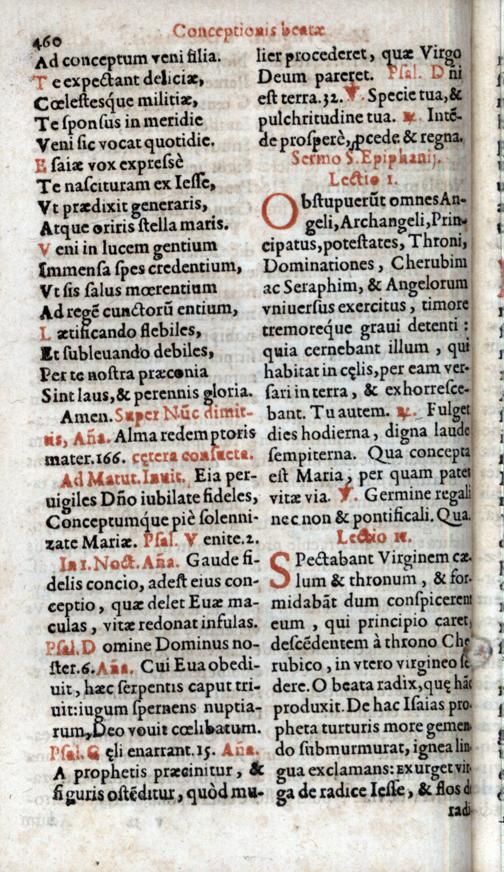 460
Conceptionis beatæ
Ad conceptum veni filia.
Te expectant deliciæ,
Cœlestesque militiæ,
Te sponsus in meridie
Veni sic vocat quotidie.
Esaiæ vox expressè
Te nascituram ex Iesse,
Vt prædixit generaris,
Atque oriris stella maris.
Veni in lucem gentium
Immensa spes credentium,
Vt sis salus mœrentium
Ad regē cunctorū entium,
Lætificando flebiles,
Et subleuando debiles,
Per te nostra præconia
Sint laus, & perennis gloria.
Amen. Super Nūc dimit-
tis, Aña. Alma redemptoris
mater. 166. cętera consueta.
Ad Matut. Inuit. Eia per-
uigiles Dño iubilate fideles,
Conceptumque piè solenni-
zate Mariæ. Psal. Venite. 2.
In 1. Noct. Aña. Gaude fi-
delis concio, adest eius con-
ceptio, quæ delet Euæ ma-
culas, vitæ redonat infulas.
Psal. Domine Dominus no-
ster. 6. Aña. Cui Eua obedi-
uit, hæc serpentis caput tri-
uit: iugum spernens nuptia-
rum, Deo vouit cœlibatum.
Psal. Cęli enarrant. 15. Aña.
A prophetis præcinitur, &
figuris ostēditur, quòd mu-
lier procederet, quæ Virgo
Deum pareret. Psal. Dñi
est terra. 32. ℣. Specie tua, &
pulchritudine tua. ℟. Intē-
de prosperè, ꝓcede & regna.
Sermo S. Epiphanij.
Lectio 1.
Obstupuerūt omnes An-
geli, Archangeli, Prin-
cipatus, potestates, Throni,
Dominationes, Cherubim
ac Seraphim, & Angelorum
vniuersus exercitus, timore
tremoreque graui detenti:
quia cernebant illum, qui
habitat in cęlis, per eam ver-
sari in terra, & exhorresce-
bant. Tu autem. ℟. Fulget
dies hodierna, digna laude
sempiterna. Qua concepta
est Maria, per quam patet
vitæ via. ℣. Germine regali
nec non & pontificali. Qua.
Lectio 11.
Spectabant Virginem cæ-
lum & thronum, & for-
midabāt dum conspicerent
eum, qui principio caret,
descēdentem à throno Che
rubico, in vtero virgineo se
dere. O beata radix, quę hāc
produxit. De hac Isaias pro-
pheta turturis more gemen
do submurmurat, ignea lin-
gua exclamans: Exurget vir-
ga de radice Iesse, & flos de
radi